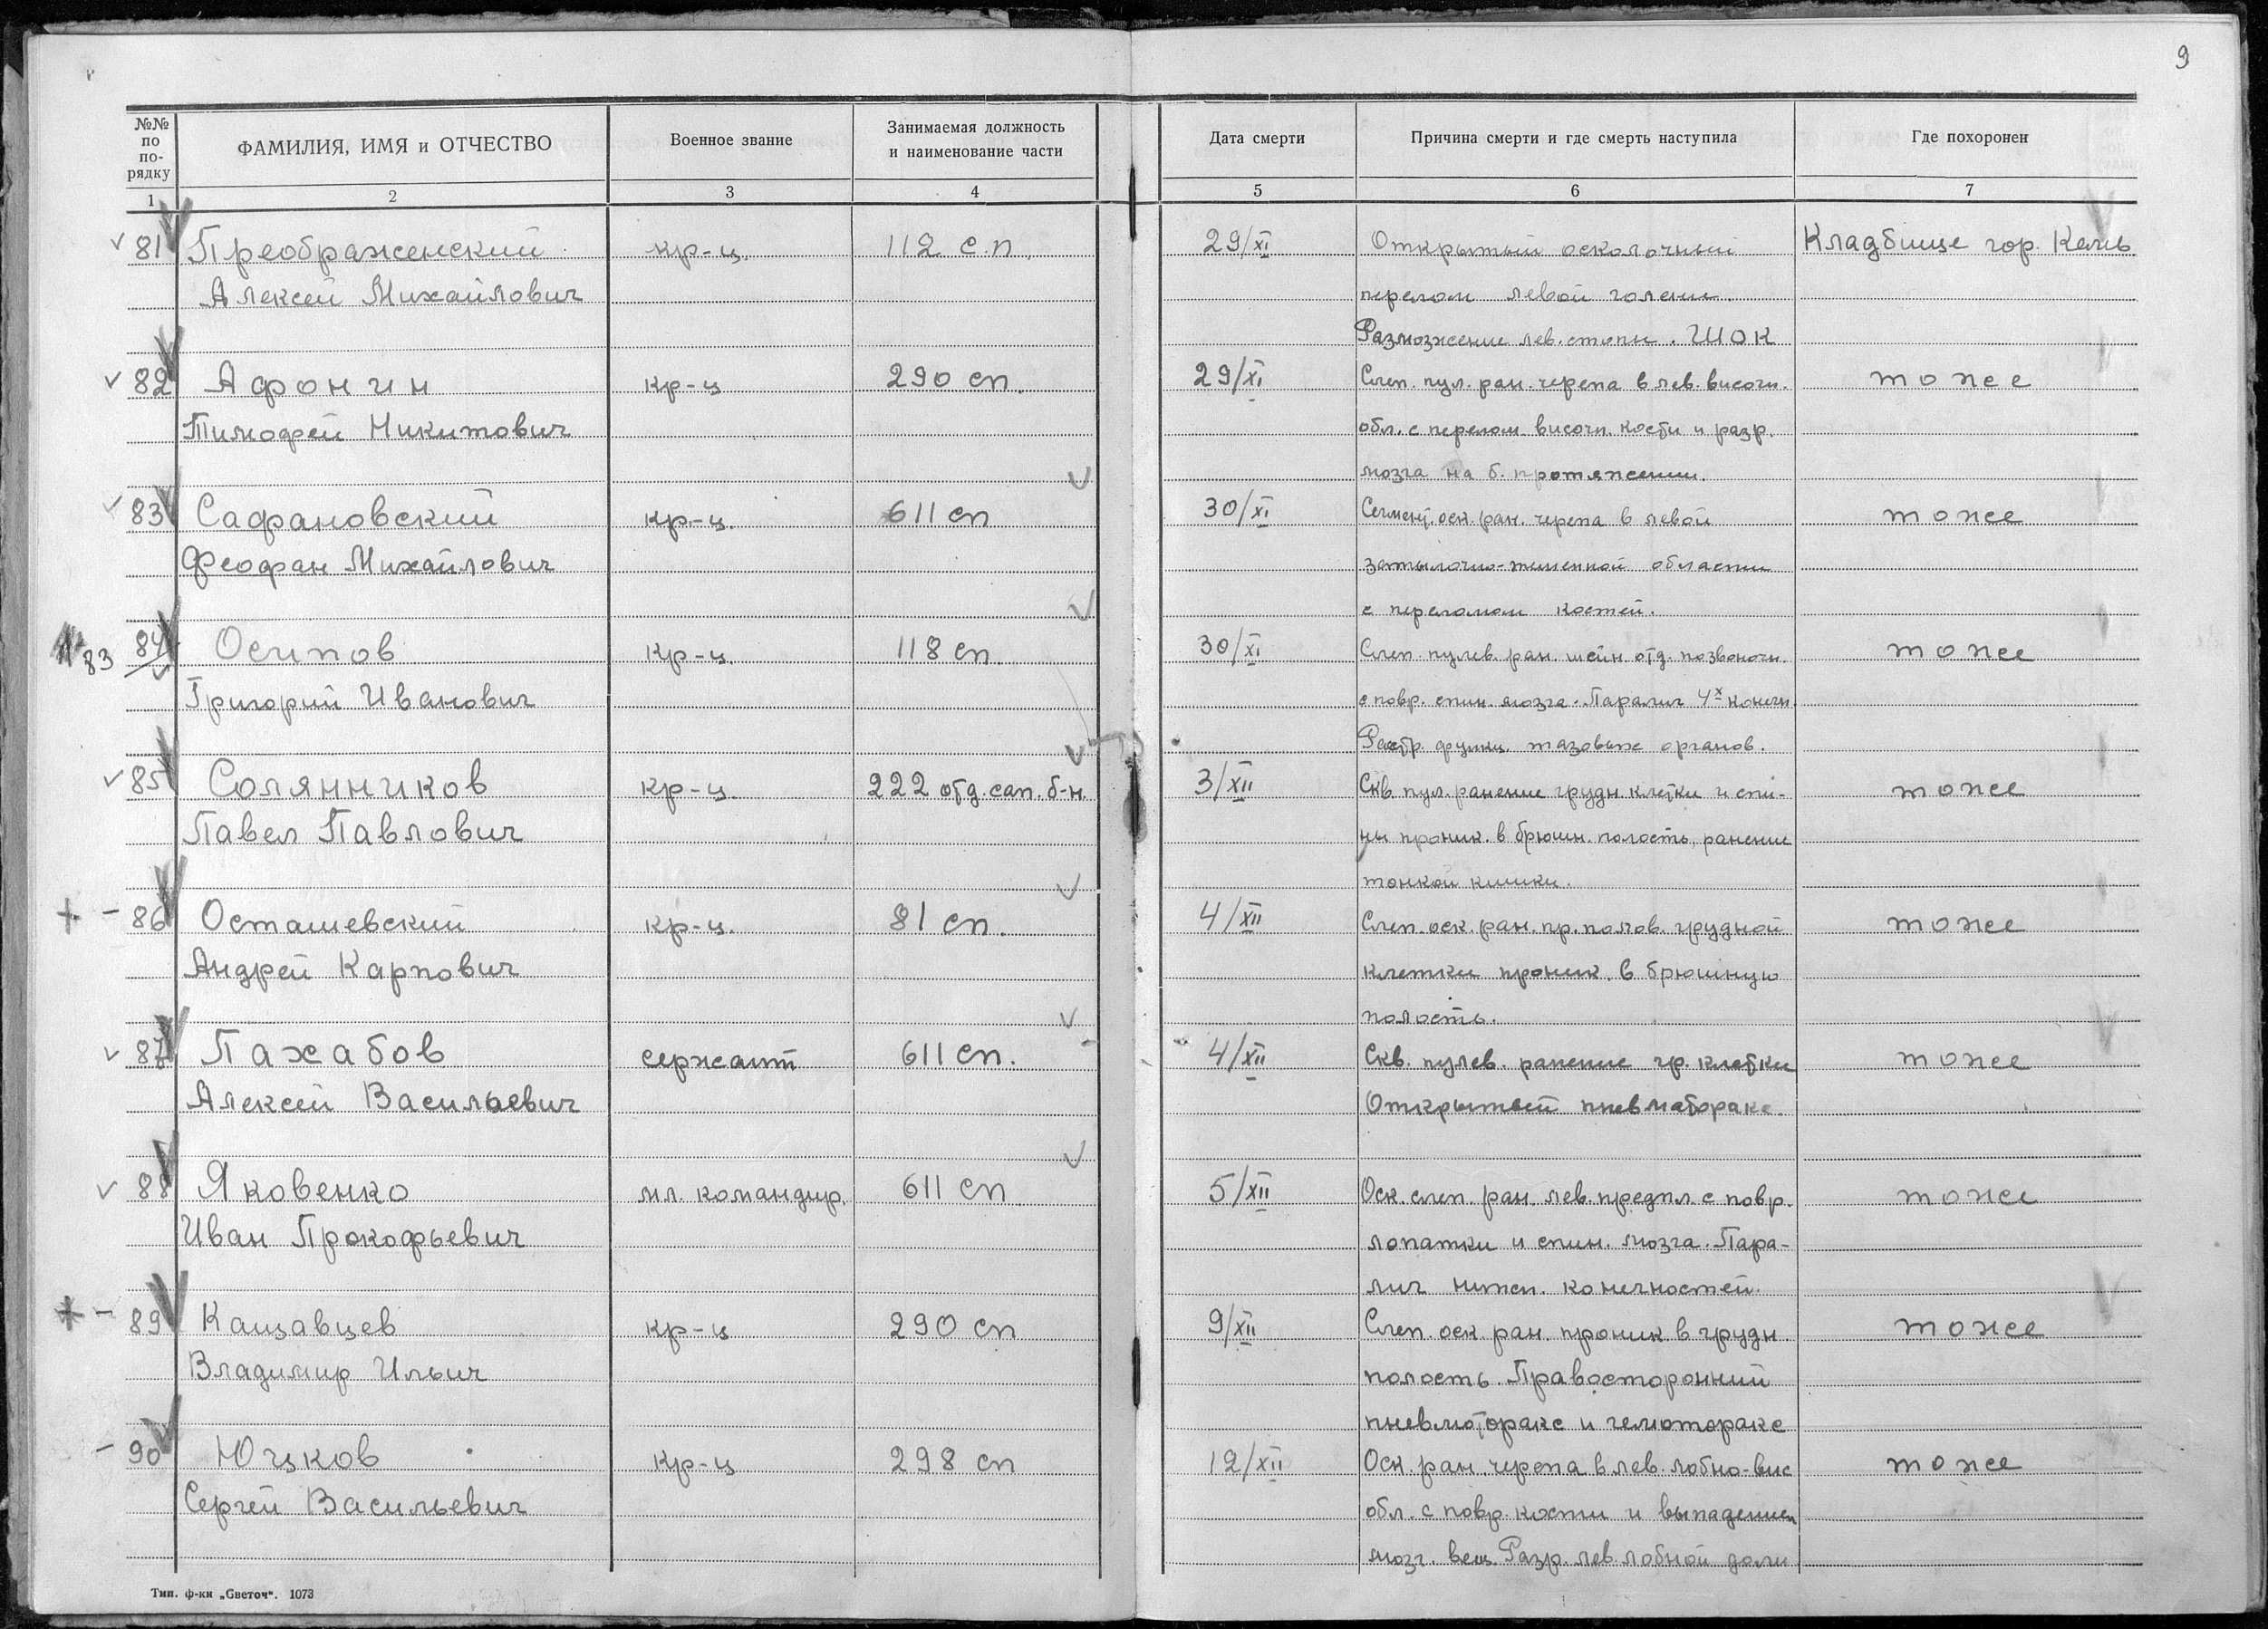 9
№№ по по-рядку
ФАМИЛИЯ, ИМЯ и ОТЧЕСТВО
Военное звание
Занимаемая должность и наименование части
Дата смерти
Причина смерти и где смерть наступила
Где похоронен
1 2 3 4 5 6 7
81 Преображенский кр-ц. 112 с.п. 29/XI Открытый осколочный Кладбище гор. Кемь
Алексей Михайлович перелом левой голени.
Размозжение лев. стопы. ШОК
82 Афонин кр-ц 290 сп. 29/XI Слеп. пул. ран. черепа в лев. височн. тоже
Тимофей Никитович обл. с перелом. височн. кости и разр.
мозга на б. протяжении.
83 Сафрановский кр-ц. 611 сп 30/XI Сегмент. оск. ран. черепа в левой тоже
Феофан Михайлович затылочно-теменной области
с переломом костей.
83 84 Осипов кр-ц. 118 сп. 30/XI Слеп. пулев. ран. шейн. отд. позвоночн. тоже
Григорий Иванович с повр. спин. мозга. Паралич 4х конечн.
Расстр. функц. тазовых органов.
85 Солянников кр-ц. 222 отд. сап. б-н. 3/XII Скв. пул. ранение грудн. клетки и спи- тоже
Павел Павлович ны проник. в брюшн. полость, ранение
тонкой кишки.
86 Осташевский кр-ц. 81 сп. 4/XII Слеп. оск. ран. пр. полов. грудной тоже
Андрей Карпович клетки проник. в брюшную
полость.
87 Пахабов сержант 611 сп. 4/XII Скв. пулев. ранение гр. клетки тоже
Алексей Васильевич Открытый пневматоракс.
88 Яковенко мл. командир. 611 сп 5/XII Оск. слеп. ран. лев. предпл. с повр. тоже
Иван Прокофьевич лопатки и спин. мозга. Пара-
лич нижн. конечностей.
89 Кащавцев кр-ц 290 сп 9/XII Слеп. оск. ран. проник. в грудн. тоже
Владимир Ильич полость. Правосторонний
пневмоторакс и гемоторакс
90 кр-ц 298 сп 12/XII Оск. ран. черепа в лев. лобно-вис тоже
Сергей Васильевич обл. с повр. кости и выпадением
мозг. вещ. Разр. лев. лобной доли
Тип. ф-ки „Светоч“. 1073